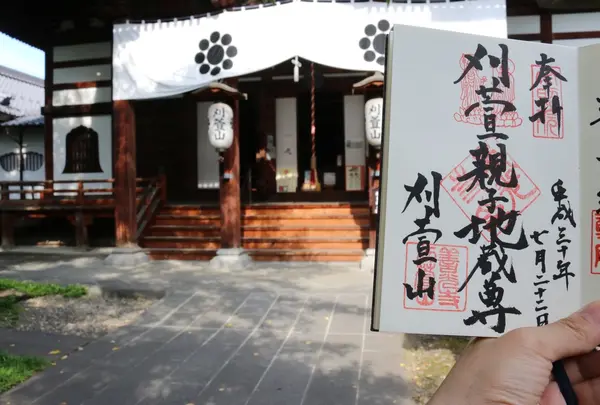 奉拝
平成三十年
七月二十二日
刈萱親子地蔵尊
刈萱山
刈萱山